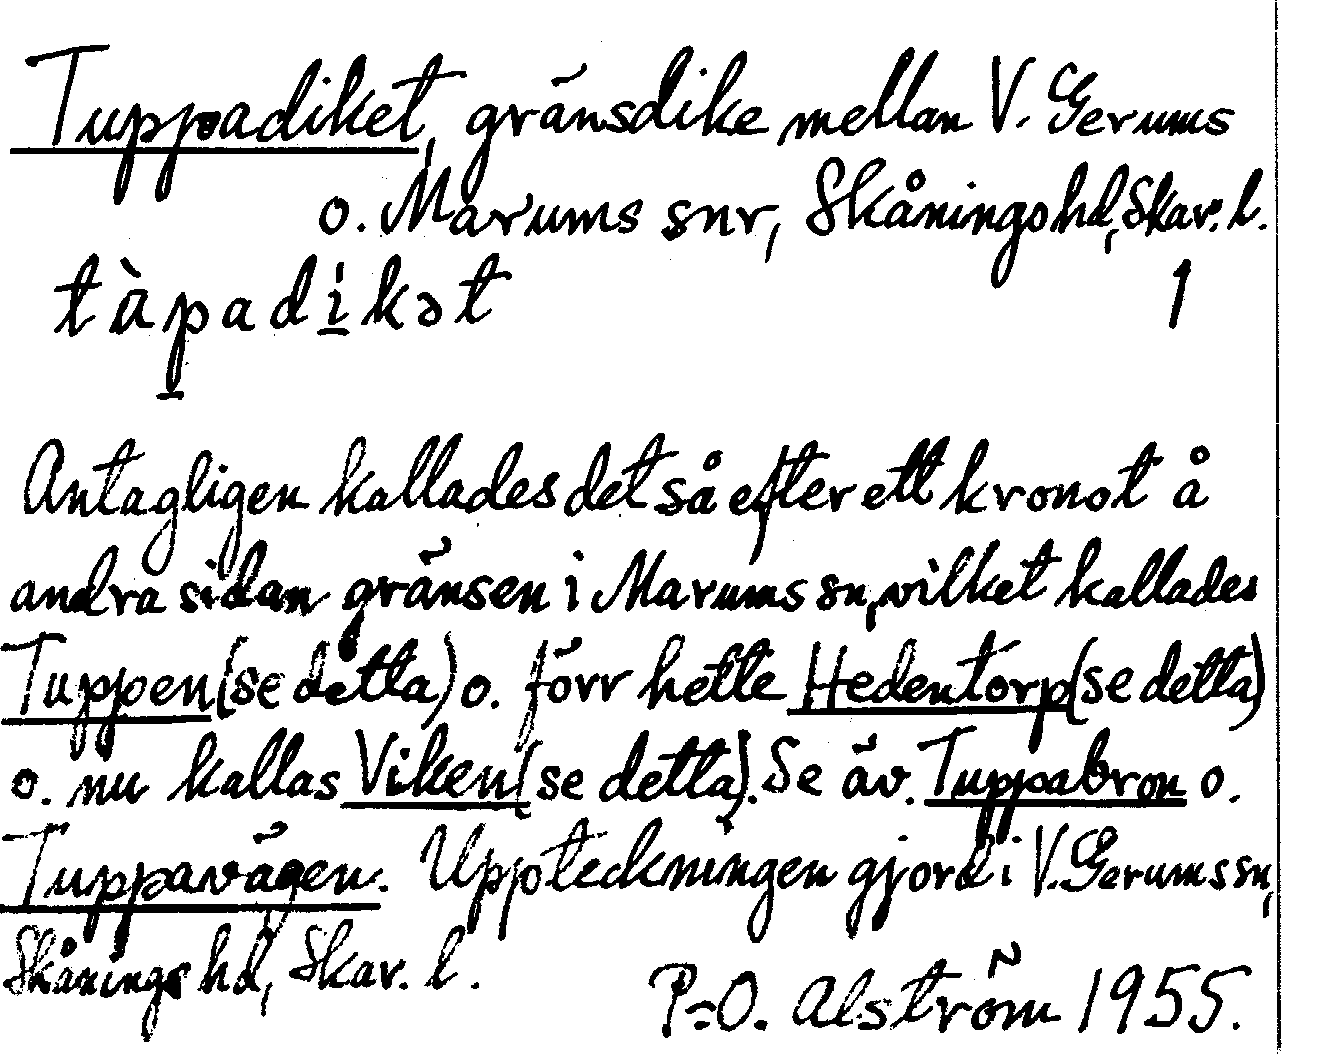 Tuppadiket, gränsdike mellan V. Gerums
o. Marums snr, Skånings hd, Skar. l.
tàpadikət 1
Antagligen kallades det så efter ett kronot å
andra sidan gränsen i Marums sn, vilket kallades
Tuppen (se detta) o. förr hette Hedentorp (se detta)
o. nu kallas Viken (se detta). Se äv. Tuppabron o.
Tuppavägen. Uppteckningen gjord i V. Gerums sn,
Skånings hd, Skar. l.
P.-O. Alström 1955.